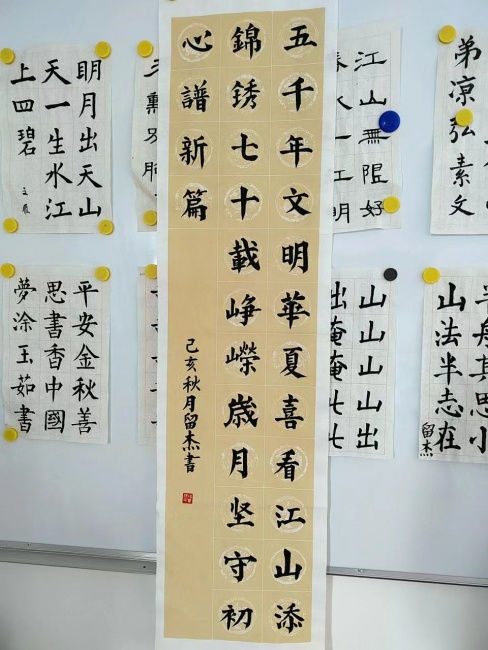 五千年文明華夏喜看江山添
錦锈七十載峥嶸歲月坚守初
心譜新篇
己亥秋月留杰書
明月出天山
天一生水江
上四碧
平安金秋善
思書香中國
夢涂玉茹書
江山無限好
水一江明
山山山山出
山法半志在
留杰